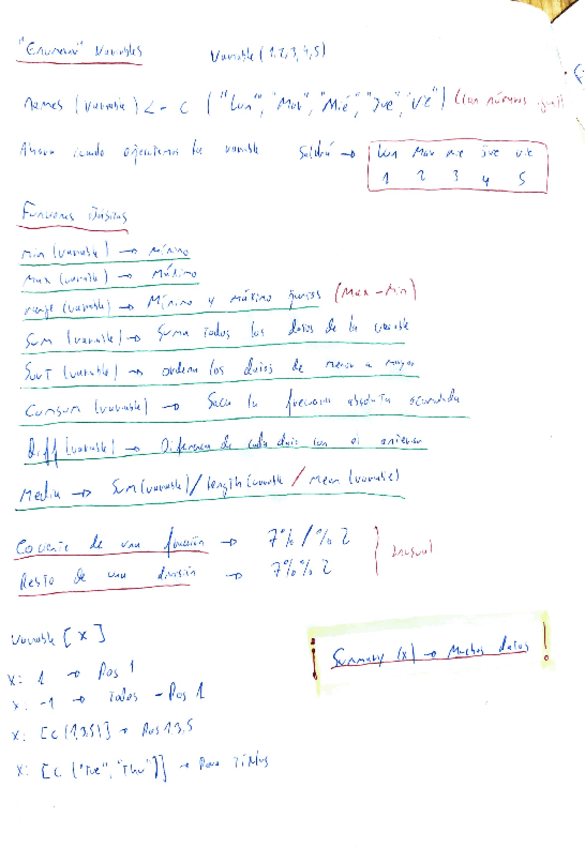 "Enumerar" Variables Variable (1,2,3,4,5)
Names (variable) <- c ("Lun", "Mar", "Mié", "Jue", "Vie") (con números igual)
Ahora cuando ejecutemos la variable Saldrá → Lun Mar Mie Jue Vie
1 2 3 4 5
Funciones Básicas
Min (variable) → Mínimo
Max (variable) → Máximo
range (variable) → Mínimo y máximo (Max - Min)
Sum (variable) → Suma todos los datos de la variable
Sort (variable) → ordena los datos de menor a mayor
Cumsum (variable) → Saca la frecuencia absoluta acumulada
Diff (variable) → Diferencia de cada dato con el anterior
Media → Sum (variable) / length (variable / Mean (variable)
Cociente de una → 7%/%2
Resto de una división → 7%%2
Inusual
Variable [x]
x: 1 → Pos 1
x: -1 → Todos - Pos 1
x: [c (1,3,5)] → Pos 1,3,5
x: [c ("Tue", "Thu")] → Para
¡ Summary (x) → Muchos datos !